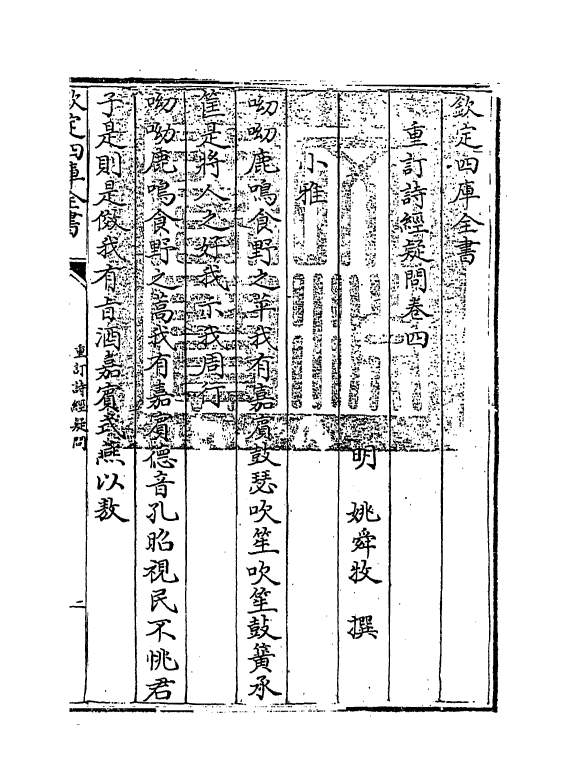 欽定四庫全書
重訂詩經疑問卷四
明　姚舜牧　撰
小雅
呦呦鹿鳴食野之苹我有嘉賓鼓瑟吹笙吹笙鼓簧承
筐是將人之好我示我周行
呦呦鹿鳴食野之蒿我有嘉賓德音孔昭視民不恌君
子是則是傚我有㫖酒嘉賓式燕以敖
欽定四庫全書
重訂詩經疑問